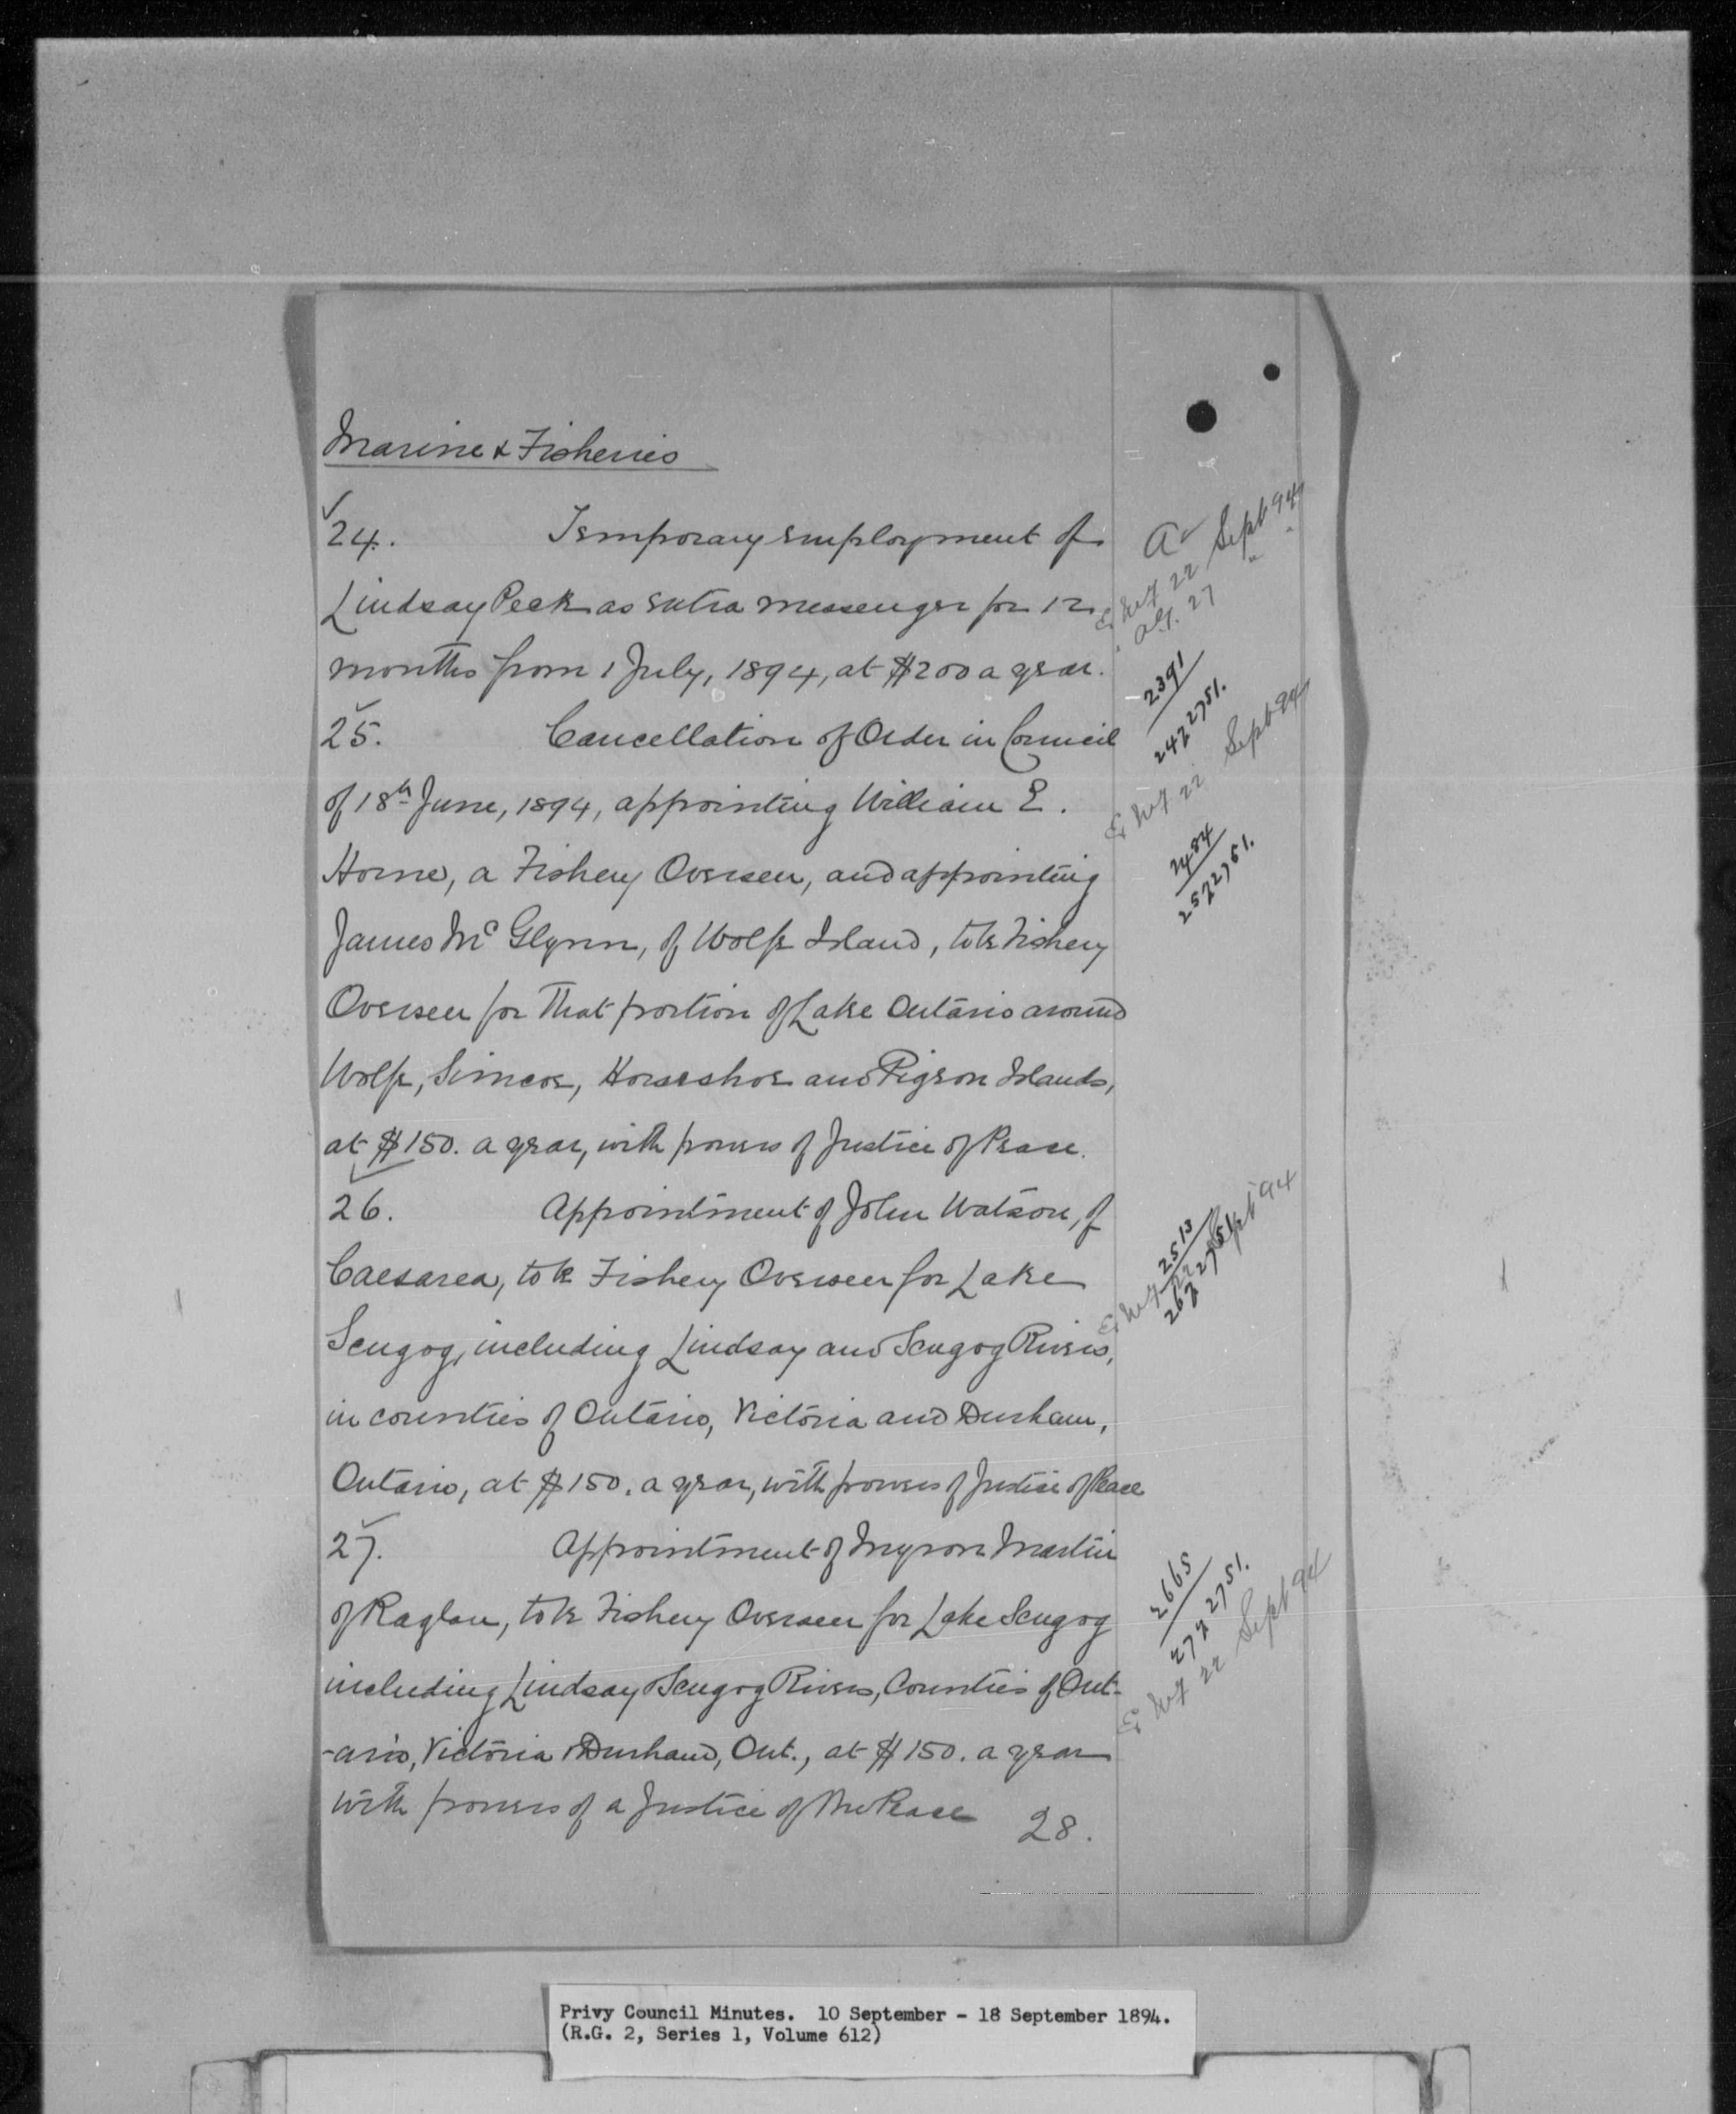 Marine & Fisheries
24. Temporary employment of
Lindsay Peck as extra messenger for 12
months from 1 July, 1894, at $200 a year.
25. Cancellation of Order in Council
of 18th June, 1894, appointing William E.
Horne, a Fishery Overseer, and appointing
James McGlynn, of Wolfe Island, to be Fishery
Overseer for that portion of Lake Ontario around
Wolfe, Simcoe, Horseshoe and Pigeon Islands,
at $150. a year, with powers of Justice of Peace.
26. Appointment of John Watson, of
Caesarea, to be Fishery Overseer for Lake
Scugog, including Lindsay and Scugog Rivers,
in counties of Ontario, Victoria and Durham,
Ontario, at $150. a year, with powers of Justice of Peace
27. Appointment of Myron Martin
of Raglan, to be Fishery Overseer for Lake Scugog
including Lindsay & Scugog Rivers, Counties of Ont-
-ario, Victoria & Durham, Ont., at $150. a year
with powers of a Justice of the Peace
28.
22 Sept 94
27
2391
24 2751.
22 Sept 94
2484
25 2751.
2513
26 2751
22 Sept 94
2665
27 2751.
22 Sept 94
Privy Council Minutes. 10 September - 18 September 1894.
(R.G. 2, Series 1, Volume 612)